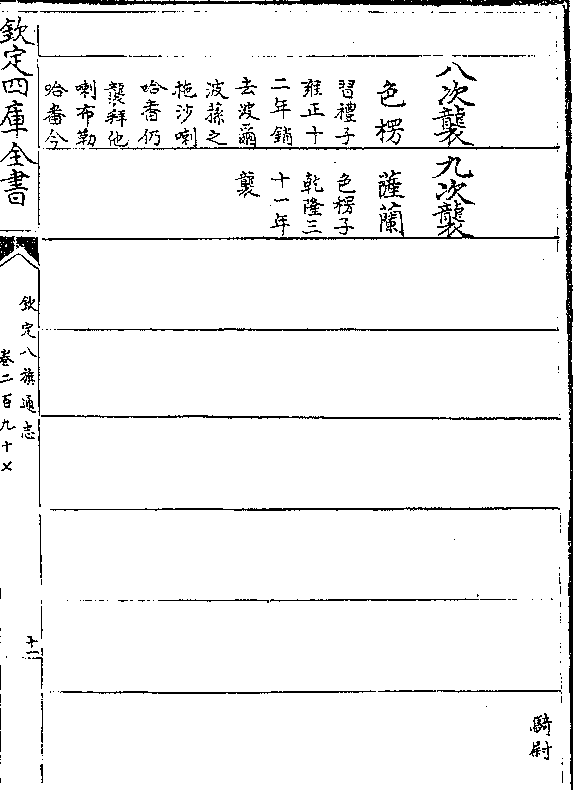 騎尉
八次襲
色楞
習禮子
雍正十
二年銷
去波爾
波蓀之
拖沙喇
哈畨仍
襲拜他
喇布勒
哈畨今
九次襲
薩蘭
色楞子
乾隆三
十一年
襲
欽定四庫全書
欽定八旗通志
卷二百九十
十二